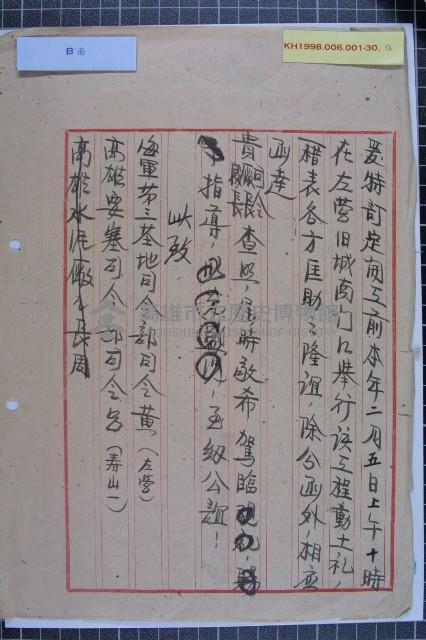 B面
KH1998.006.001-30.
爰特訂定開工前本年二月五日上午十時
在左營旧城西门口举行該工程動土礼,
藉表各方匡助之隆誼,除分函外,相應
函達
貴司令廠長查照,屆時敬希駕臨
指導,至紉公誼!
此致
海軍第三基地司令部司令黃(左營)
高雄要塞司令部司令(寿山一)
高雄水泥廠厂長周
高雄市立歷史博物館
KAOHSIUNG MUSEUM OF HISTORY